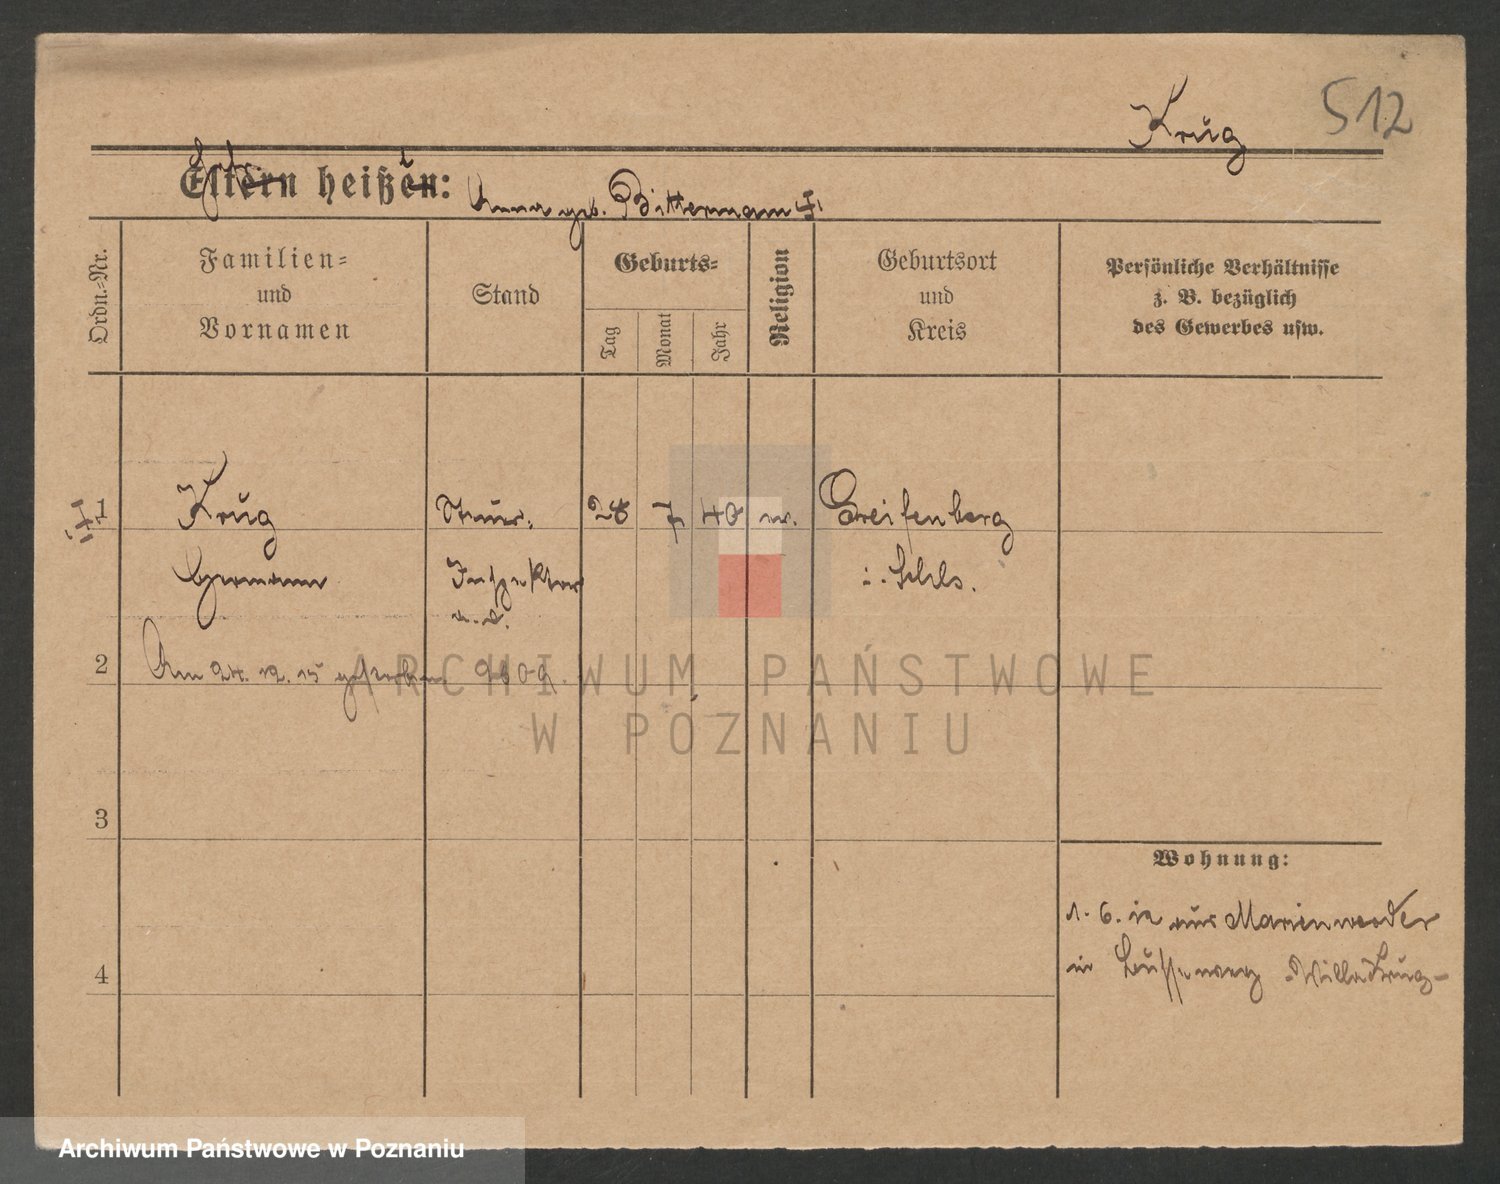 Krug
512
Eltern heißen:
Anna geb. Bittermann
Ordn.-Nr.
Familien-
und
Vornamen
Stand
Geburts-
Tag
Monat
Jahr
Religion
Geburtsort
und
Kreis
Persönliche Verhältnisse
z. B. bezüglich
des Gewerbes usw.
1
Krug
Steuer.
28
7
40
Greifenberg
Hermann
Inspektor
i. Schls.
a. D.
2
Am 24. 12. 15 gestorben
3
4
Wohnung:
1. 6. 12 aus Marienwerder
in Villa Krug
ARCHIWUM PAŃSTWOWE
W POZNANIU
Archiwum Państwowe w Poznaniu